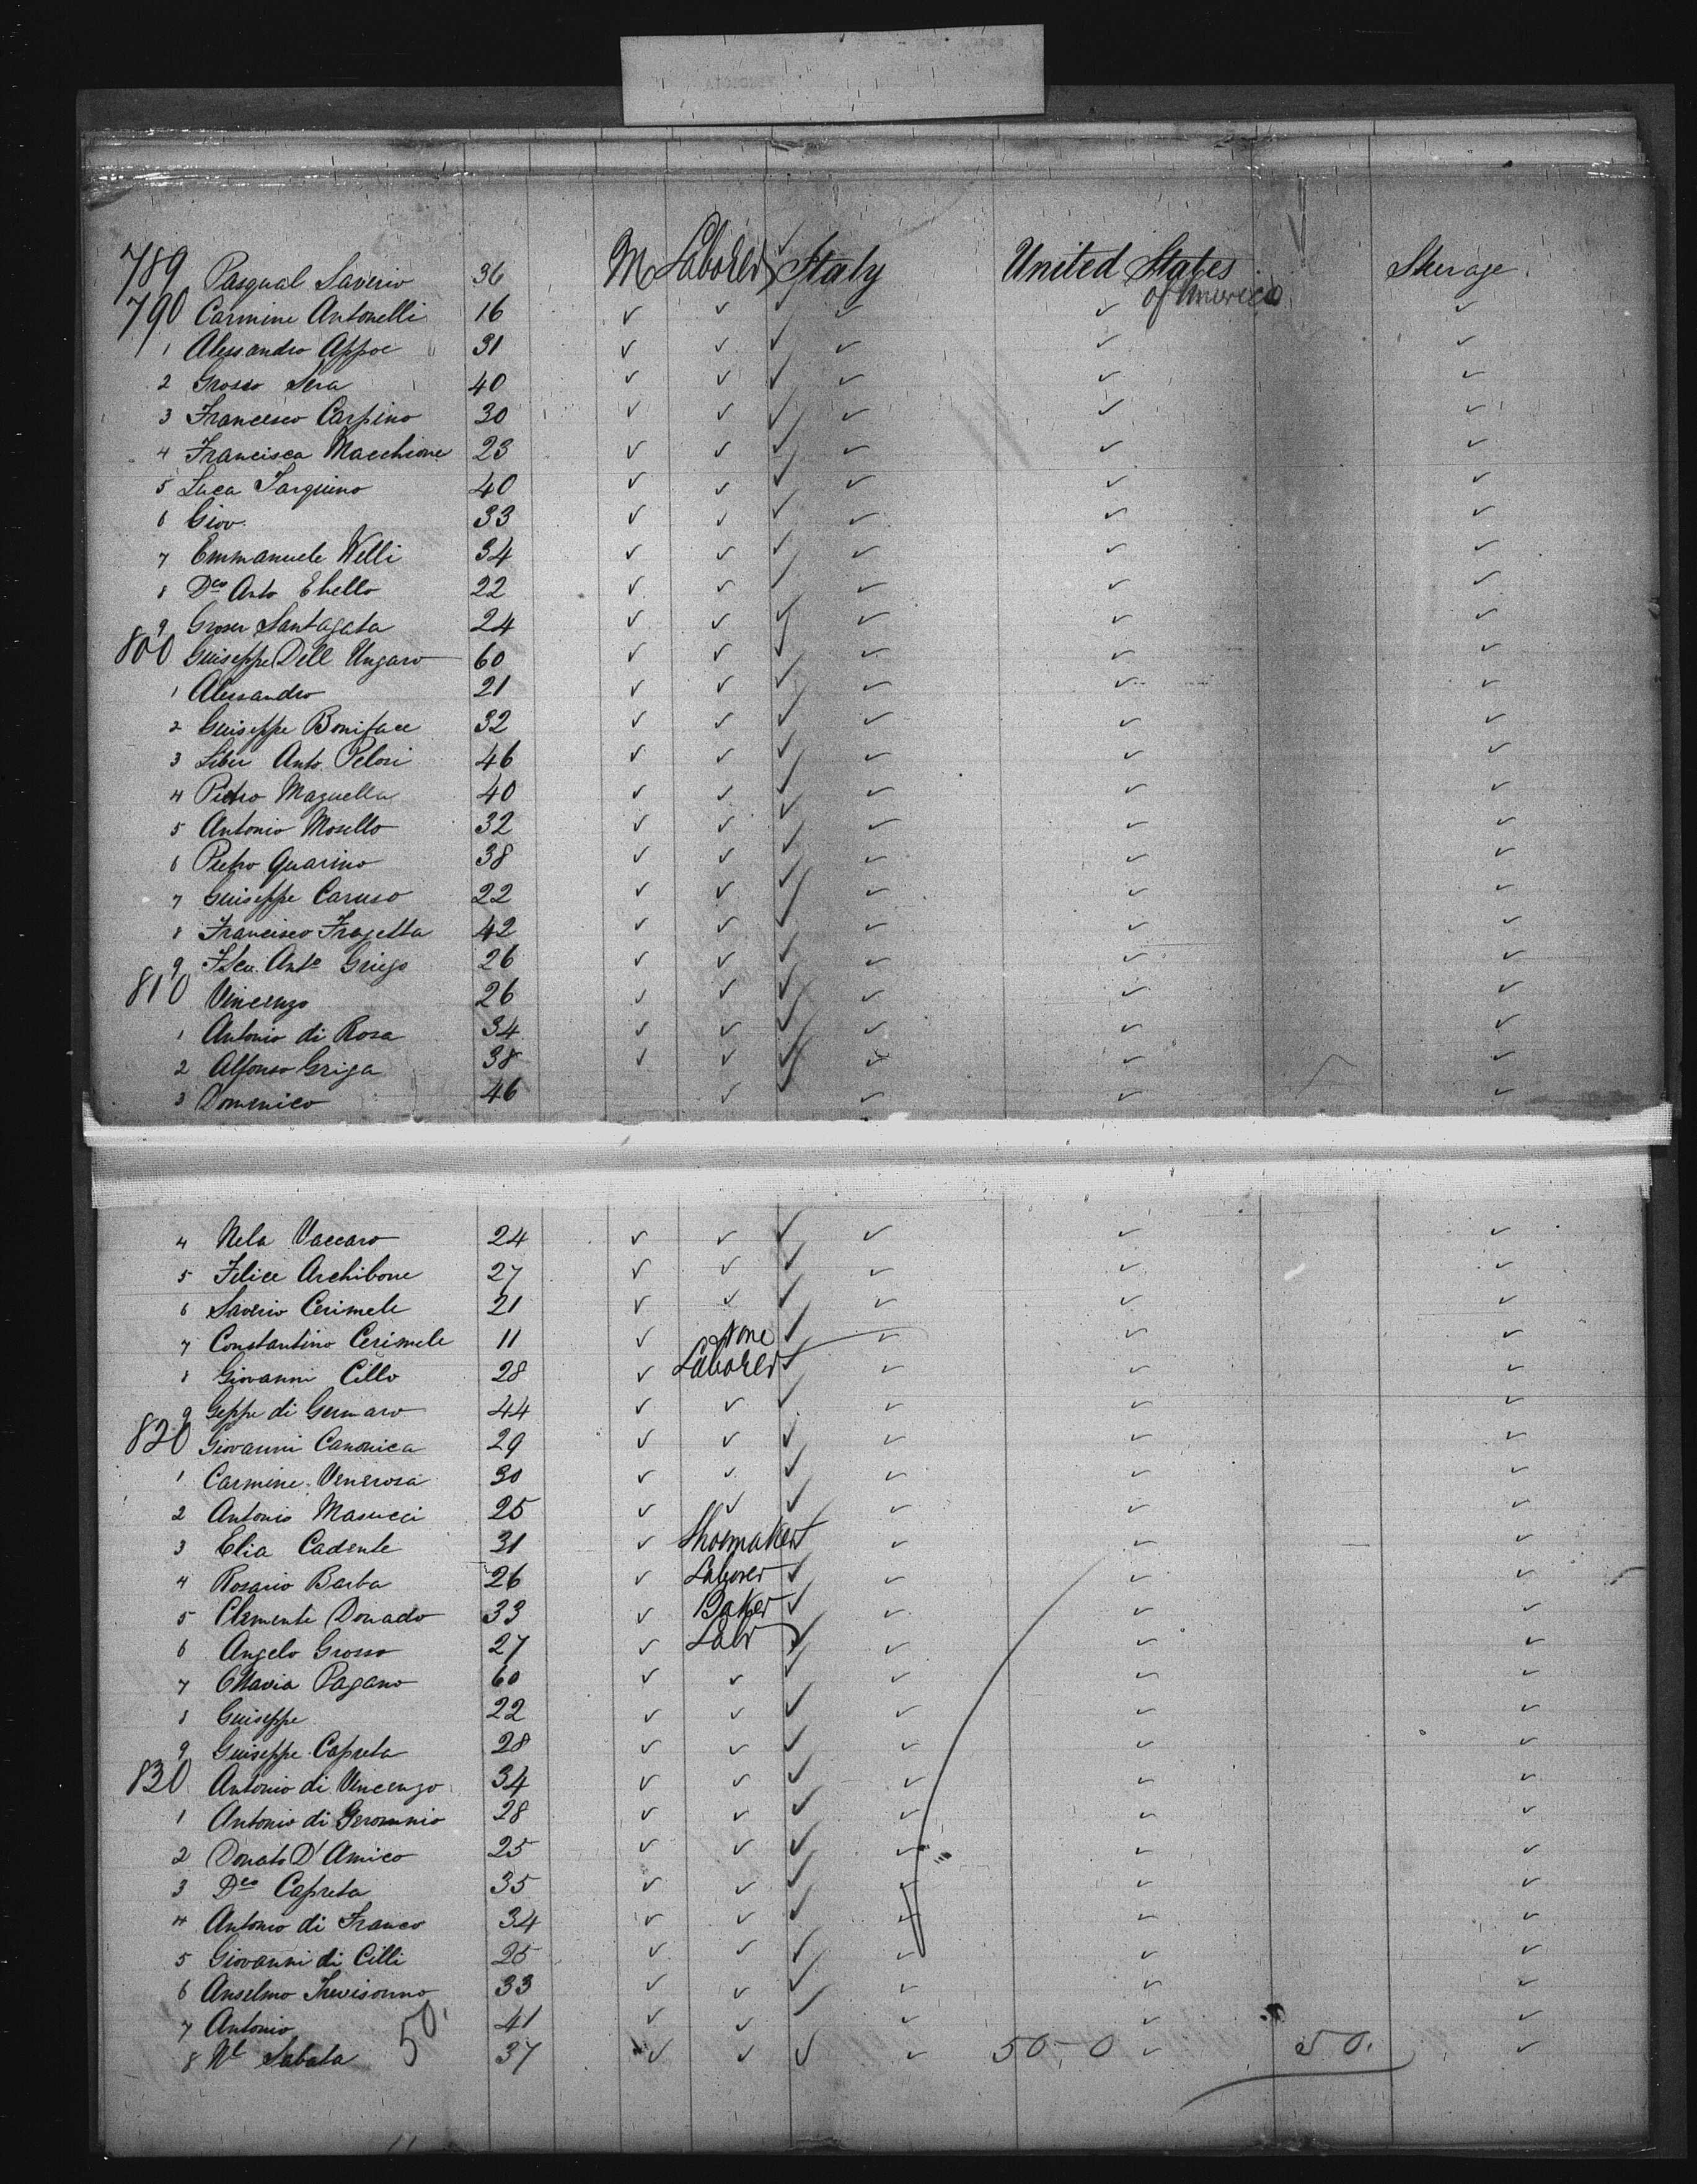 789 Pasqual Saverio 36 M Laborer Italy United States of America Sterage
790 Carmine Antonelli 16 ✓ ✓ ✓ ✓ ✓ ✓
1 Alessandro Appoe 31 ✓ ✓ ✓ ✓ ✓ ✓
2 Grosso Sera 40 ✓ ✓ ✓ ✓ ✓ ✓
3 Francesco Carpino 30 ✓ ✓ ✓ ✓ ✓ ✓
4 Francisca Macchione 23 ✓ ✓ ✓ ✓ ✓ ✓
5 Luca Tarquino 40 ✓ ✓ ✓ ✓ ✓ ✓
6 Giov. 33 ✓ ✓ ✓ ✓ ✓ ✓
7 Emmanuele Welli 34 ✓ ✓ ✓ ✓ ✓ ✓
8 Dco Anto Ehello 22 ✓ ✓ ✓ ✓ ✓ ✓
9 Santagata 24 ✓ ✓ ✓ ✓ ✓ ✓
800 Guiseppe Dell Ungaro 60 ✓ ✓ ✓ ✓ ✓ ✓
1 Alessandro 21 ✓ ✓ ✓ ✓ ✓ ✓
2 Guiseppe Boniface 32 ✓ ✓ ✓ ✓ ✓ ✓
3 Liber Anto. Pelosi 46 ✓ ✓ ✓ ✓ ✓ ✓
4 Pietro Mazuella 40 ✓ ✓ ✓ ✓ ✓ ✓
5 Antonio Mosello 32 ✓ ✓ ✓ ✓ ✓ ✓
6 Pietro Quarino 38 ✓ ✓ ✓ ✓ ✓ ✓
7 Guiseppe Caruso 22 ✓ ✓ ✓ ✓ ✓ ✓
8 Francisco Fragetta 42 ✓ ✓ ✓ ✓ ✓ ✓
9 Anto Griego 26 ✓ ✓ ✓ ✓ ✓ ✓
810 Vincenzo 26 ✓ ✓ ✓ ✓ ✓ ✓
1 Antonio di Rosa 34 ✓ ✓ ✓ ✓ ✓ ✓
2 Alfonso Griga 38 ✓ ✓ ✓ ✓ ✓ ✓
3 Domenico 46 ✓ ✓ ✓ ✓ ✓
4 Nela Vaccaro 24 ✓ ✓ ✓ ✓ ✓ ✓
5 Felice Archibone 27 ✓ ✓ ✓ ✓ ✓ ✓
6 Saverio Cerimele 21 ✓ ✓ ✓ ✓ ✓ ✓
7 Constantino Cerimele 11 ✓ None ✓ ✓ ✓ ✓
8 Giovanni Cillo 28 ✓ Laborer ✓ ✓ ✓ ✓
9 Geppe di Gennaro 44 ✓ ✓ ✓ ✓ ✓ ✓
820 Giovanni Canonica 29 ✓ ✓ ✓ ✓ ✓ ✓
1 Carmine Venerosa 30 ✓ ✓ ✓ ✓ ✓ ✓
2 Antonio Masucci 25 ✓ ✓ ✓ ✓ ✓ ✓
3 Elia Cadente 31 ✓ Shoemaker ✓ ✓ ✓ ✓
4 Rosario Barba 26 ✓ Laborer ✓ ✓ ✓ ✓
5 Clemente Donado 33 ✓ Baker ✓ ✓ ✓ ✓
6 Angelo Grosso 27 ✓ Labr ✓ ✓ ✓ ✓
7 Ottavia Pagano 60 ✓ ✓ ✓ ✓ ✓ ✓
8 Guiseppe 22 ✓ ✓ ✓ ✓ ✓ ✓
9 Guiseppe Capreta 28 ✓ ✓ ✓ ✓ ✓ ✓
830 Antonio di Vincenzo 34 ✓ ✓ ✓ ✓ ✓ ✓
1 Antonio di Geromnio 28 ✓ ✓ ✓ ✓ ✓ ✓
2 Donato D'Amico 25 ✓ ✓ ✓ ✓ ✓ ✓
3 Dco Capreta 35 ✓ ✓ ✓ ✓ ✓ ✓
4 Antonio di Franco 34 ✓ ✓ ✓ ✓ ✓ ✓
5 Giovanni di Cilli 25 ✓ ✓ ✓ ✓ ✓ ✓
6 Anselmo Trevisonno 33 ✓ ✓ ✓ ✓ ✓ ✓
7 Antonio 41 ✓ ✓ ✓ ✓ ✓ ✓
8 Sabata 50. 37 ✓ ✓ ✓ ✓ 50-0 ✓ 50. ✓